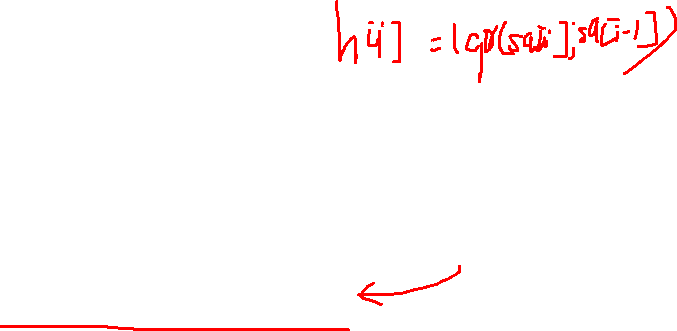 h[i] = lcp(sa[i], sa[i-1])